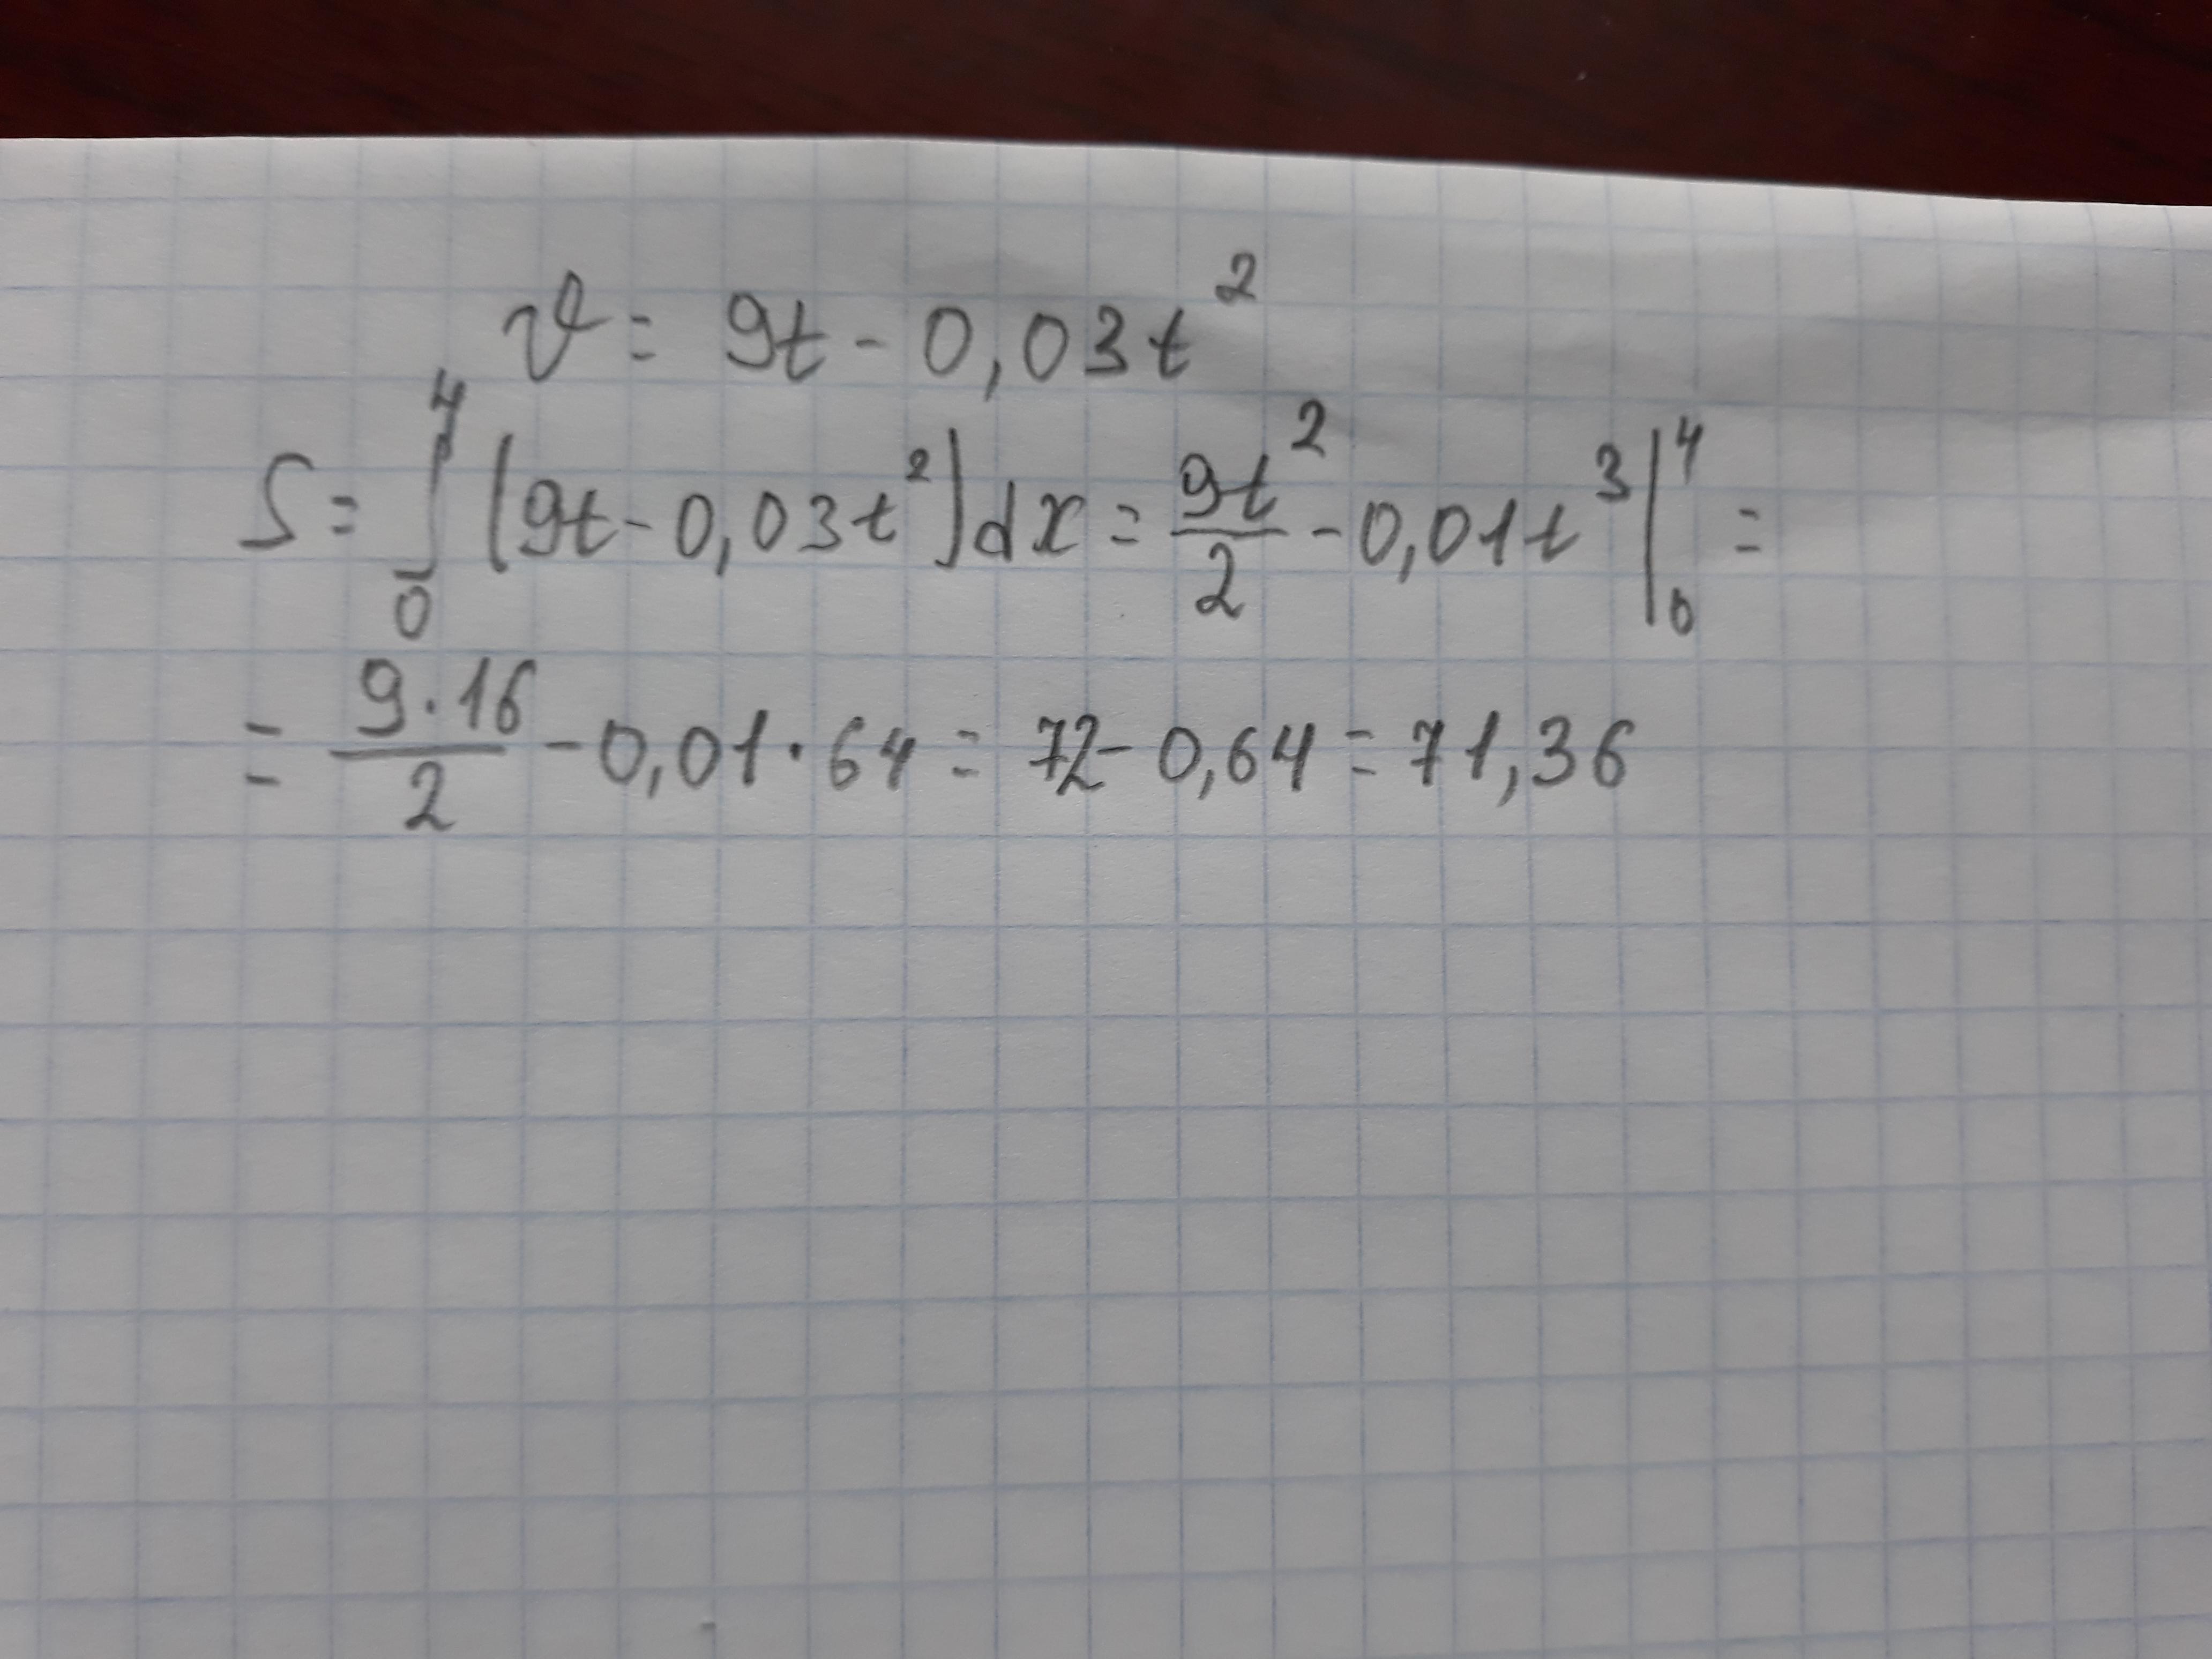 ϑ = 9t - 0,03t²
S = ∫₀⁴ (9t - 0,03t²)dx = 9t²/2 - 0,01t³|₀⁴ =
= 9·16/2 - 0,01·64 = 72 - 0,64 = 71,36